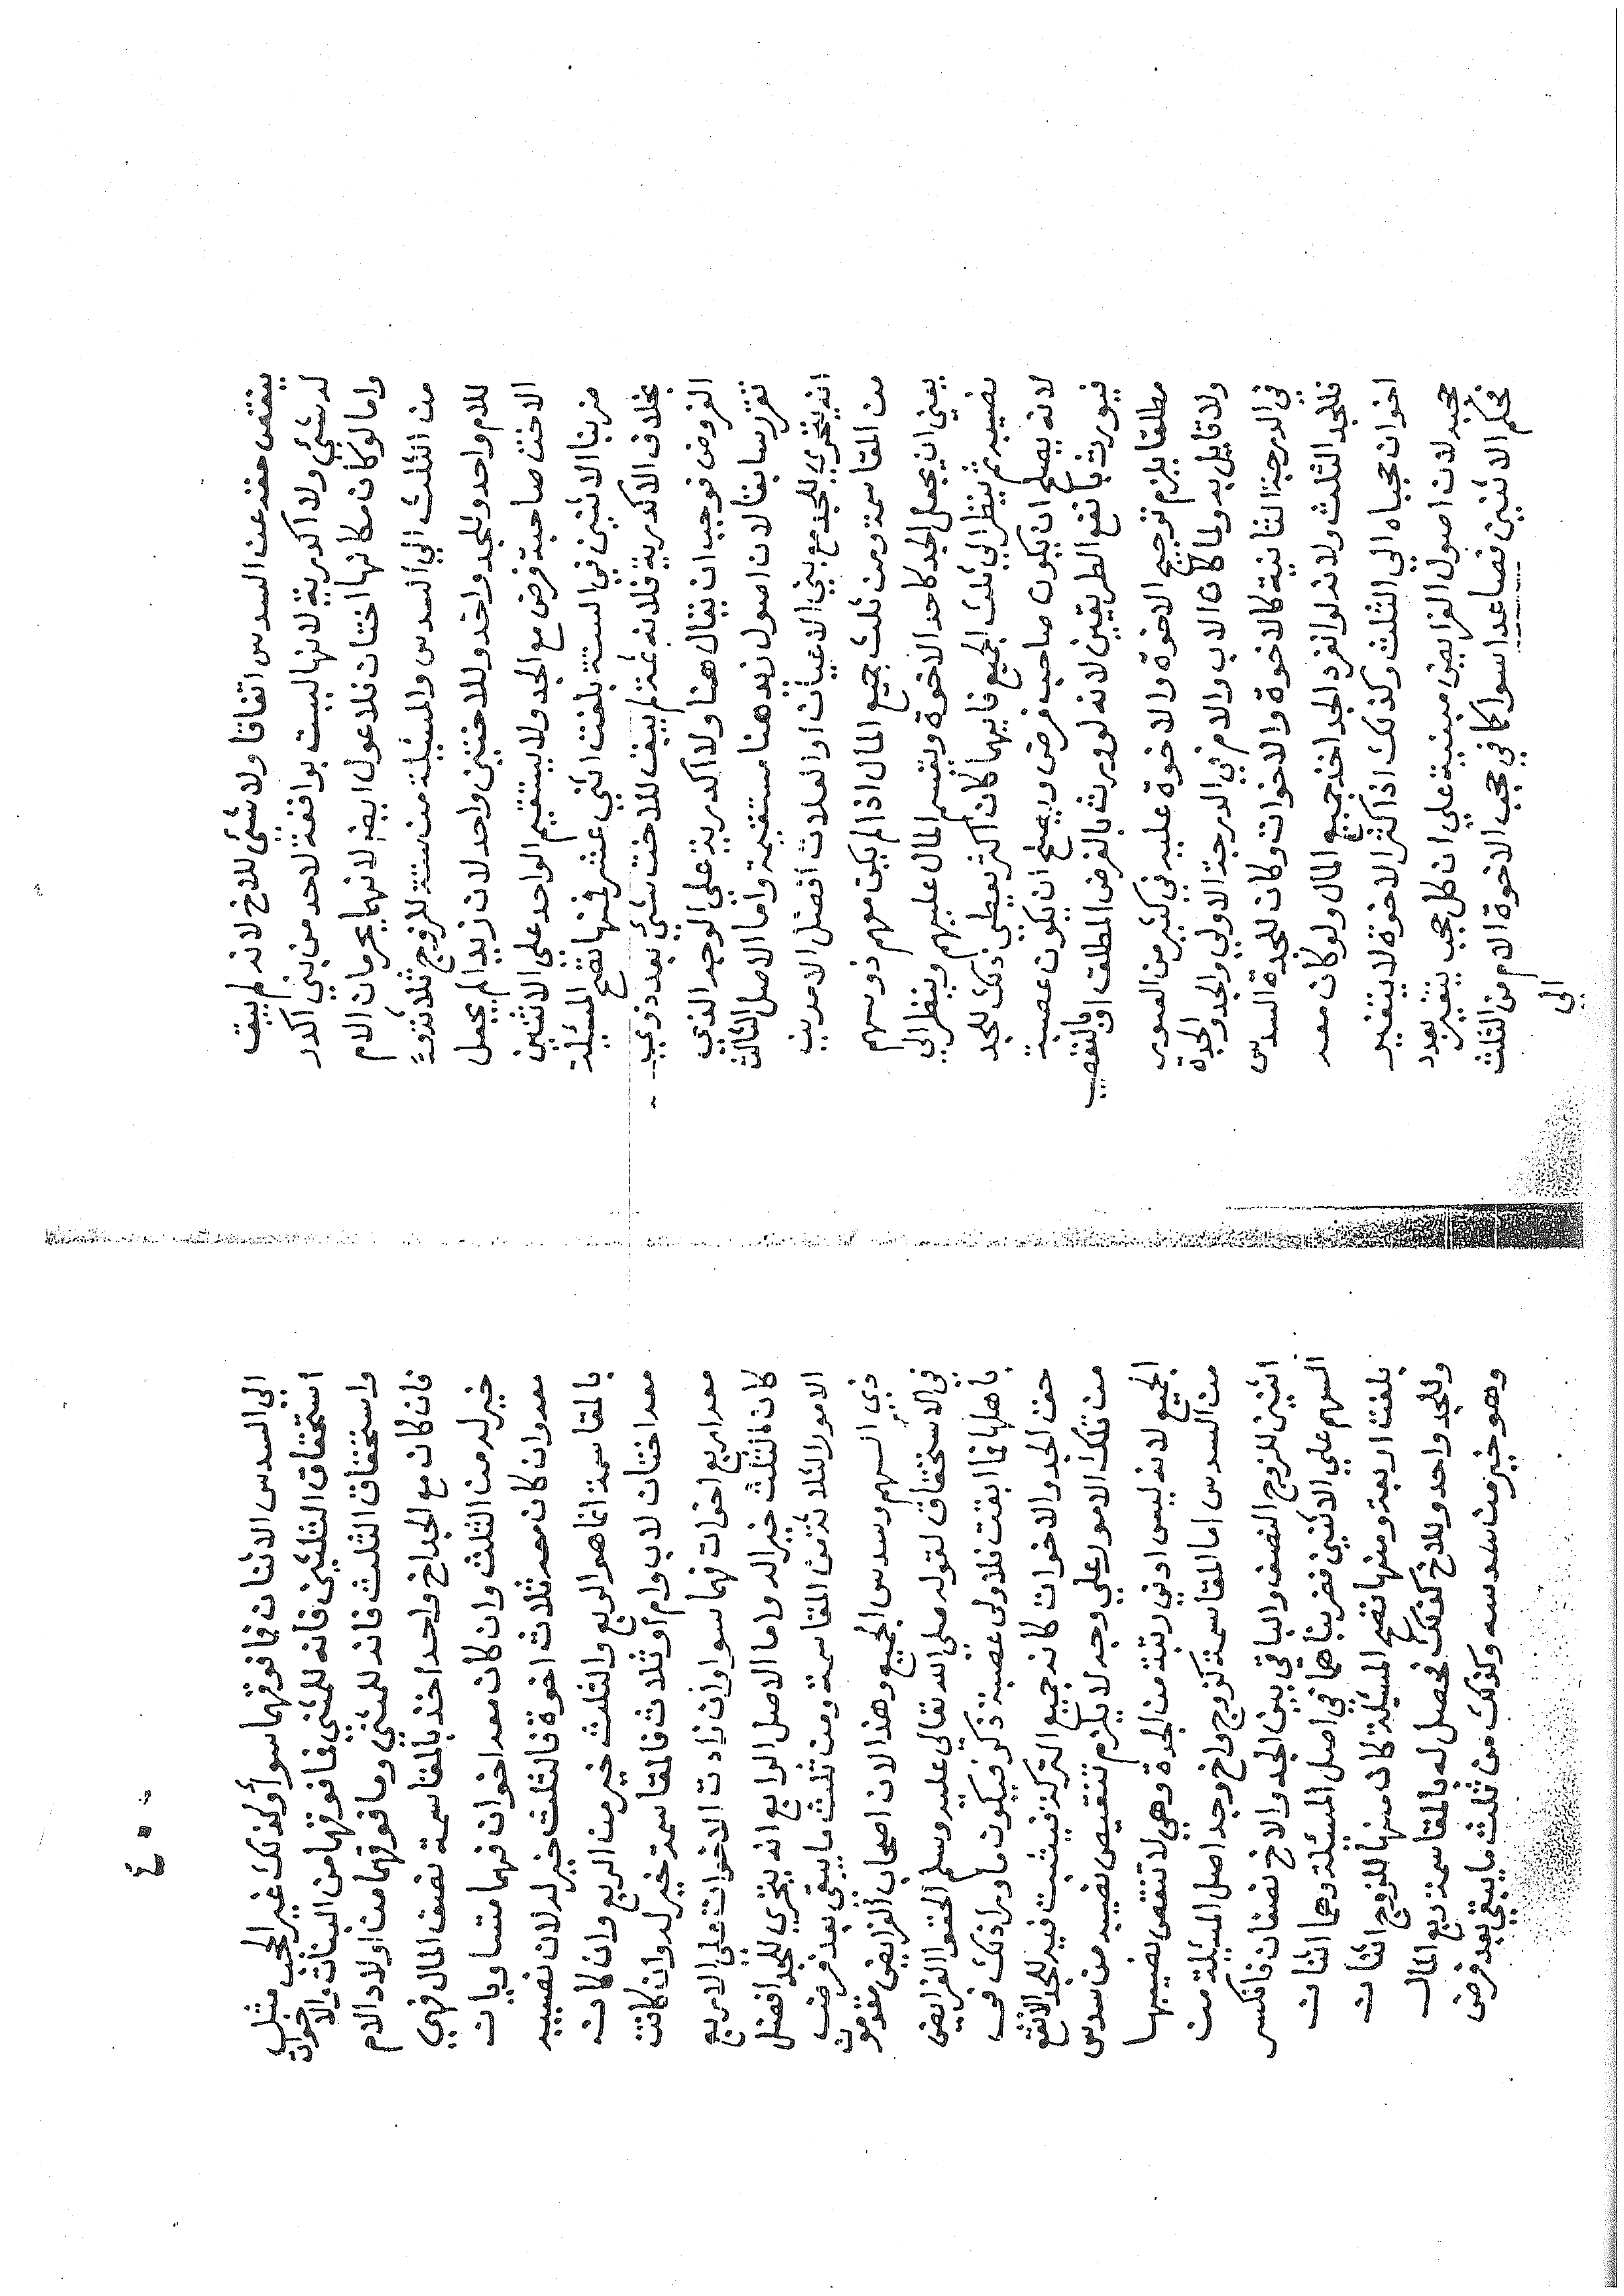 ينقص حقه عن السدس اتفاقا ولا شئ للاخ لانه لم يبق
له شئي ولا اكدرية لانها ليست بواقفة لاحد من بني اكدر
واما لو كان مكانها اختان فلا عول ايضا لانهما يحرمان الام
من الثلث الي السدس والمسئلة من ستة للزوج ثلاثة و
للام واحد وللجد واحد وللاختين واحد لان زيدا لم يجعل
الاخت صاحبة فرض مع الجد ولا يستقيم الواحد علي الاثنين
ضربنا الاثنين في الستة بلغت اثني عشر فمنها تصح المسئلة
بخلاف الاكدرية فلانه ثمة لم يبق للاخت شئ بعد ذوي
الفروض فوجب ان يقال هنا ولا اكدرية علي الوجه الذي
تقرر سابقا لان اصول زيد هنا مستقيمة واما الاصل الثالث
انه يتحري للجد مع بني الاعيان او العلات افضل الامرين
من المقاسمة ومن ثلث جميع المال اذا لم يكن معهم ذو سهم
يعني ان يجعل الجد كاحد الاخوة ويقسم المال عليهم وينظر الي
نصيبه ثم ينظر الي ثلث الجميع فايهما كان اكثر يعطي ذلك للجد
لانه يصلح ان يكون صاحب فرض ويصلح ان يكون عصبة
فيورث بانفع الطريقين لانه لو ورث بالفرض المطلق او بالتعصيب
مطلقا يلزم ترجيح الاخوة والاخوة عليه في كثير من الصور
ولا قايل به ولما كان الاب والام في الدرجة الاولي والجد والجدة
في الدرجة الثانية كالاخوة والاخوات وكان للجدة السدس
فللجد الثلث ولانه لو انفرد الجد اخذ جميع المال ولو كان معه
اخوان حجباه الي الثلث وكذلك اذا كثر الاخوة لا يتغير
حجبه لان اصول الفرايض مبنية علي ان كل حجب يتغير بعدد
فحكم الاثنين فصاعدا سوا كما في حجب الاخوة الام من الثلث
الي
الي السدس الاثنان فما فوقهما سوا وكذلك غير الحجب مثل
استحقاق الثلثين فانه للمثني فما فوقهما من البنات والاخوات
واستحقاق الثلث فانه للمثني وما فوقهما من اولاد الام
فان كان مع الجد اخ واحد اخذ بالمقاسمة نصف المال فهي
خير له من الثلث وان كان معه اخوان فهما متساويان
معه وان كان معه ثلاث اخوة فالثلث خير له لان نصيبه
بالمقاسمة انما هو الربع والثلث خير من الربع وان كان
معه اختان لاب وام او ثلاث فالمقاسمة خير له وان كانت
معه اربع اخوات فهما سوا وان زادت الاخوات علي الاربع
كان الثلث خيرا له واما الاصل الرابع انه يتحري للجد افضل
الامور الثلاثة من المقاسمة ومن ثلث ما يبقي بعد فرض
ذي السهم وسدس الجميع وهذا لان اصحاب الفرايض مقدمون
في الاستحقاق لقوله صلي الله تعالي عليه وسلم الحقوا الفرايض
باهلها فما ابقت فلاولي عصبة ذكر فيكون ما ورا ذلك في
حق الجد والاخوات كانه جميع التركة فيثبت فيه للجد الانفع
من تلك الامور علي وجه لا يلزم تنقيص نصيبه من سدس
الجميع لانه ليس ادني رتبة من الجدة وهي لا تنقص نصيبها
من السدس اما المقاسمة كزوج واخ وجد اصل المسئلة من
اثنين للزوج النصف والباقي بين الجد والاخ نصفان فانكسر
السهم علي الاثنين فضربنا هما في اصل المسئلة وهما اثنان
بلغت اربعة ومنها تصح المسئلة كان منها للزوج اثنان
وللجد واحد وللاخ كذلك فحصل له بالمقاسمة ربع المال
وهو خير من سدسه وكذلك من ثلث ما يبقي بعد فرض